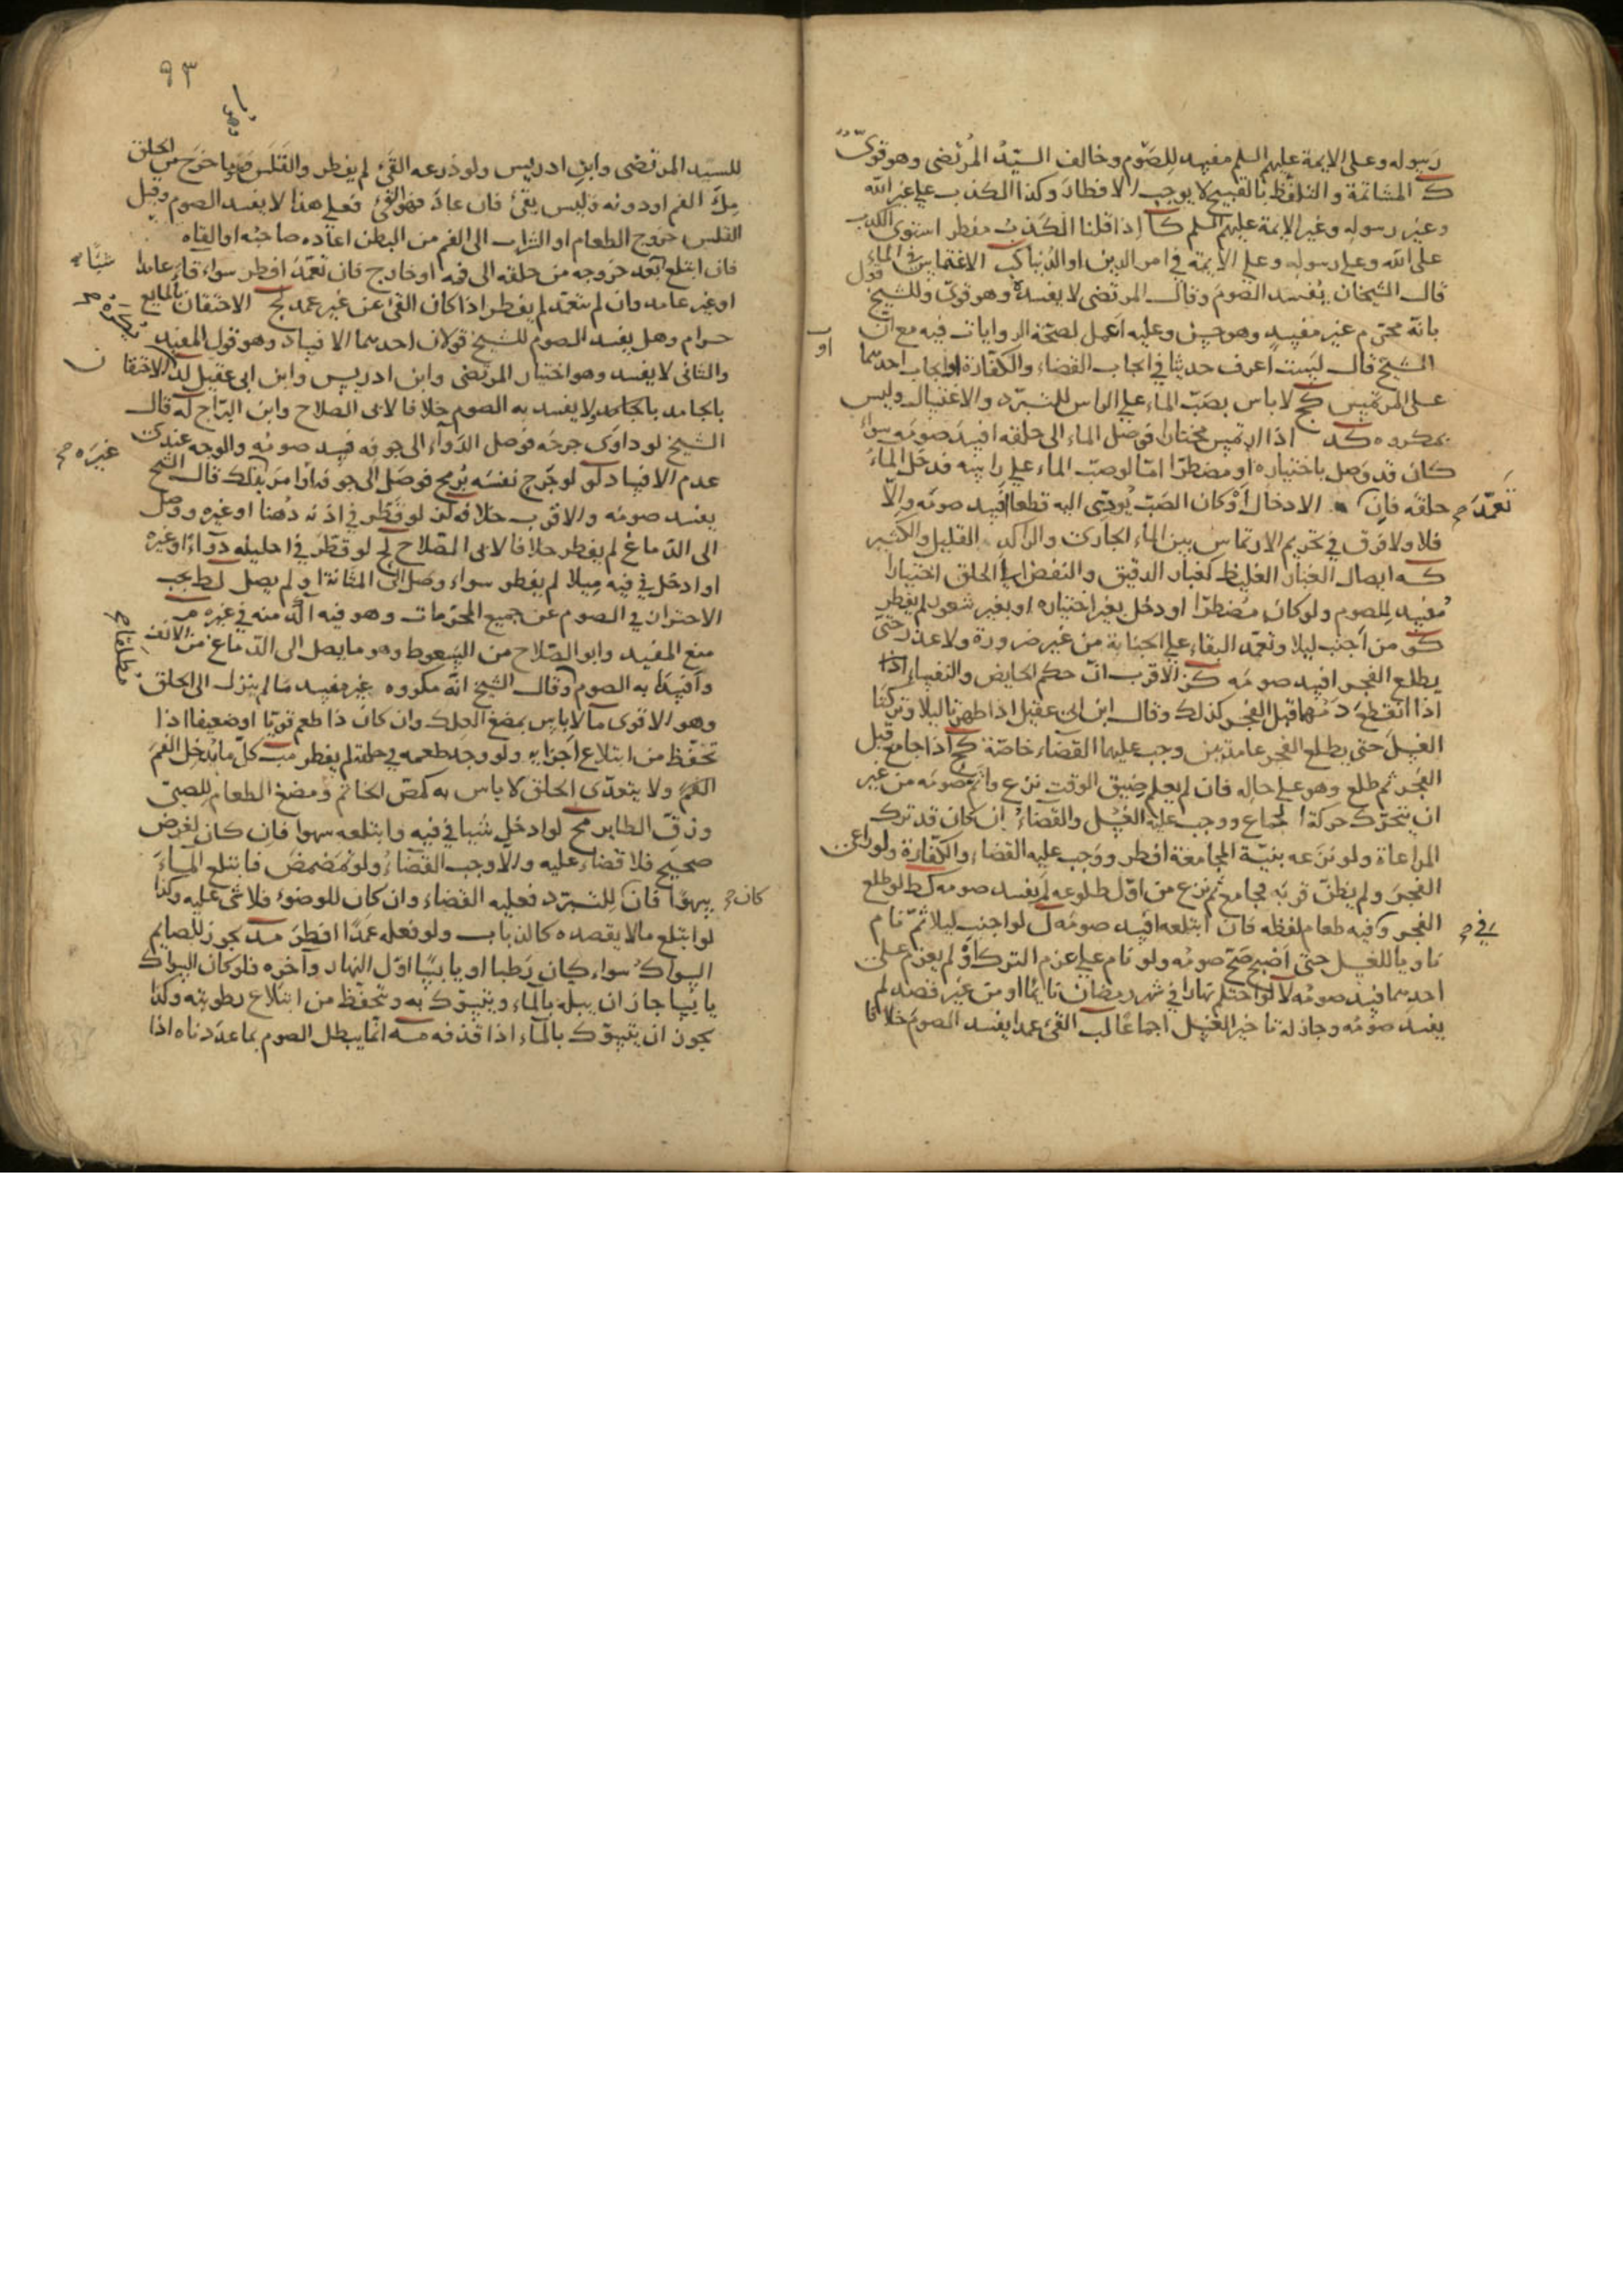 رسوله وعلى الايمة عليهم السلم مفسد للصوم وخالف السيد المرتضى وهو قوى
ك المشاتمة والتلفظ بالقبيح لا يوجب الافطار وكذا الكذب على غير الله
وغير رسوله وغير الايمة عليهم السلم كا اذا قلنا الكذب مفطر استوى الكذب
على الله وعلى رسوله وعلى الايمة في امر الدين او الدنيا كب الاغتماس في الماء
قال الشيخان يفسد الصوم وقال المرتضى لا يفسده وهو قوى وللشيخ قول
بانه محرم غير مفسد وهو حسن وعليه اعمل لصحة الروايات فيه مع ان
الشيخ قال لست اعرف حديثا في ايجاب القضاء والكفارة او ايجاب احدهما
او
على المرتمس كج لا باس بصب الماء على الراس للتبرد والاغتسال وليس
بمكروه كد اذا ارتمس مختارا فوصل الماء الى حلقه افسد صومه سواء
كان قد وصل باختياره او مضطرا اما لو صب الماء على راسه فدخل الماء
حلقه فان الادخال او كان الصب يودى اليه قطعا افسد صومه والا
تعمد
فلا ولا فرق في تحريم الارتماس بين الماء الجارى والراكد القليل والكثير
كه ايصال الغبار الغليظ كغبار الدقيق والنفض الى الحلق اختيارا
مفسد للصوم ولو كان مضطرا او دخل بغير اختياره او بغير شعور لم يفطر
كو من اجنب ليلا وتعمد البقاء على الجنابة من غير ضرورة ولا عذر حتى
يطلع الفجر افسد صومه كز الاقرب ان حكم الحايض والنفساء اذا
اذا انقطع دمهما قبل الفجر كذلك وقال ابن ابى عقيل اذا طهرتا ليلا وتركتا
الغسل حتى يطلع الفجر عامدتين وجب عليهما القضاء خاصة كح اذا جامع قبل
الفجر ثم طلع وهو على حاله فان لم يعلم ضيق الوقت نزع واتم صومه من غير
ان يتحرك حركة الجماع ووجب عليه الغسل والقضاء ان كان قد ترك
المراعاة ولو نزعه بنية المجامعة افطر ووجب عليه القضاء والكفارة ولو راعى
الفجر ولم يظن قربه فجامع ثم نزع من اول طلوعه لم يفسد صومه كط لو طلع
الفجر وفيه طعام لفظه فان ابتلعه افسد صومه ل لو اجنب ليلا ثم نام
في
ناويا للغسل حتى اصبح صح صومه ولو نام على عزم الترك او لم يعزم على
احدهما فسد صومه لا لو احتلم نهارا في شهر رمضان نايما او من غير قصد لم
يفسد صومه وجاز له تاخير الغسل اجماعا لب القىء عمدا يفسد الصوم خلافا
٩٣
للسيد المرتضى وابن ادريس ولو ذرعه القىء لم يفطر والقلس هو ما خرج من الحلق
ملء الفم او دونه وليس بقىء فان عاد فهو القىء فعلى هذا لا يفسد الصوم وقيل
القلس خروج الطعام او الشراب الى الفم من البطن اعاده صاحبه او القاه
فان ابتلع بعد خروجه من حلقه الى فيه او خارج فان تعمد افطر سواء قاء عامدا
شيئا
او غير عامد وان لم يتعمد لم يفطر اذا كان القىء عن غير عمد لج الاحتقان بالمايع
حرام وهل يفسد الصوم للشيخ قولان احدهما الافساد وهو قول المفيد
والثانى لا يفسد وهو اختيار المرتضى وابن ادريس وابن ابى عقيل لد الاحتقان
بالجامد ولا يفسد به الصوم خلافا لابى الصلاح وابن البراج له قال
الشيخ لو داوى جرحه فوصل الدواء الى جوفه فسد صومه والوجه عندى
عدم الافساد لو لو جرح نفسه برمح فوصل الى جوفه او امر بذلك قال الشيخ
غيره
يفسد صومه والاقرب خلافه لز لو قطر في اذنه دهنا او غيره ووصل
الى الدماغ لم يفطر خلافا لابى الصلاح لح لو قطر في احليله دواء او غيره
او ادخل في فيه ميلا لم يفطر سواء وصل الى المثانة او لم يصل لط يجب
الاحتراز في الصوم عن جميع المحرمات وهو فيه آكد منه في غيره م
منع المفيد وابو الصلاح من السعوط وهو ما يصل الى الدماغ من الانف
مطلقا
وافسدا به الصوم وقال الشيخ انه مكروه غير مفسد ما لم ينزل الى الحلق
وهو الاقوى ما لا باس بمضغ العلك وان كان ذا طعم قويا او ضعيفا اذا
تحفظ من ابتلاع اجزايه ولو وجد طعمه في حلقه لم يفطر مب كل ما يدخل الفم
الفم ولا يتعدى الحلق لا باس به كمص الخاتم ومضغ الطعام للصبى
وزق الطاير مج لو ادخل شيئا في فيه وابتلعه سهوا فان كان لغرض
صحيح فلا قضاء عليه والا وجب القضاء ولو تمضمض فابتلع الماء
سهوا فان للتبرد فعليه القضاء وان كان للوضوء فلا شى عليه وكذا
كان
لو ابتلع ما لا يقصده كالذباب ولو فعله عمدا افطر مد يجوز للصايم
السواك سواء كان رطبا او يابسا اول النهار وآخره فلو كان السواك
يابسا جاز ان يبله بالماء ويتسوك به وتحفظ من ابتلاع رطوبته وكذا
يجوز ان يتسوك بالماء اذا قذفه مه انما يبطل الصوم بما عددناه اذا